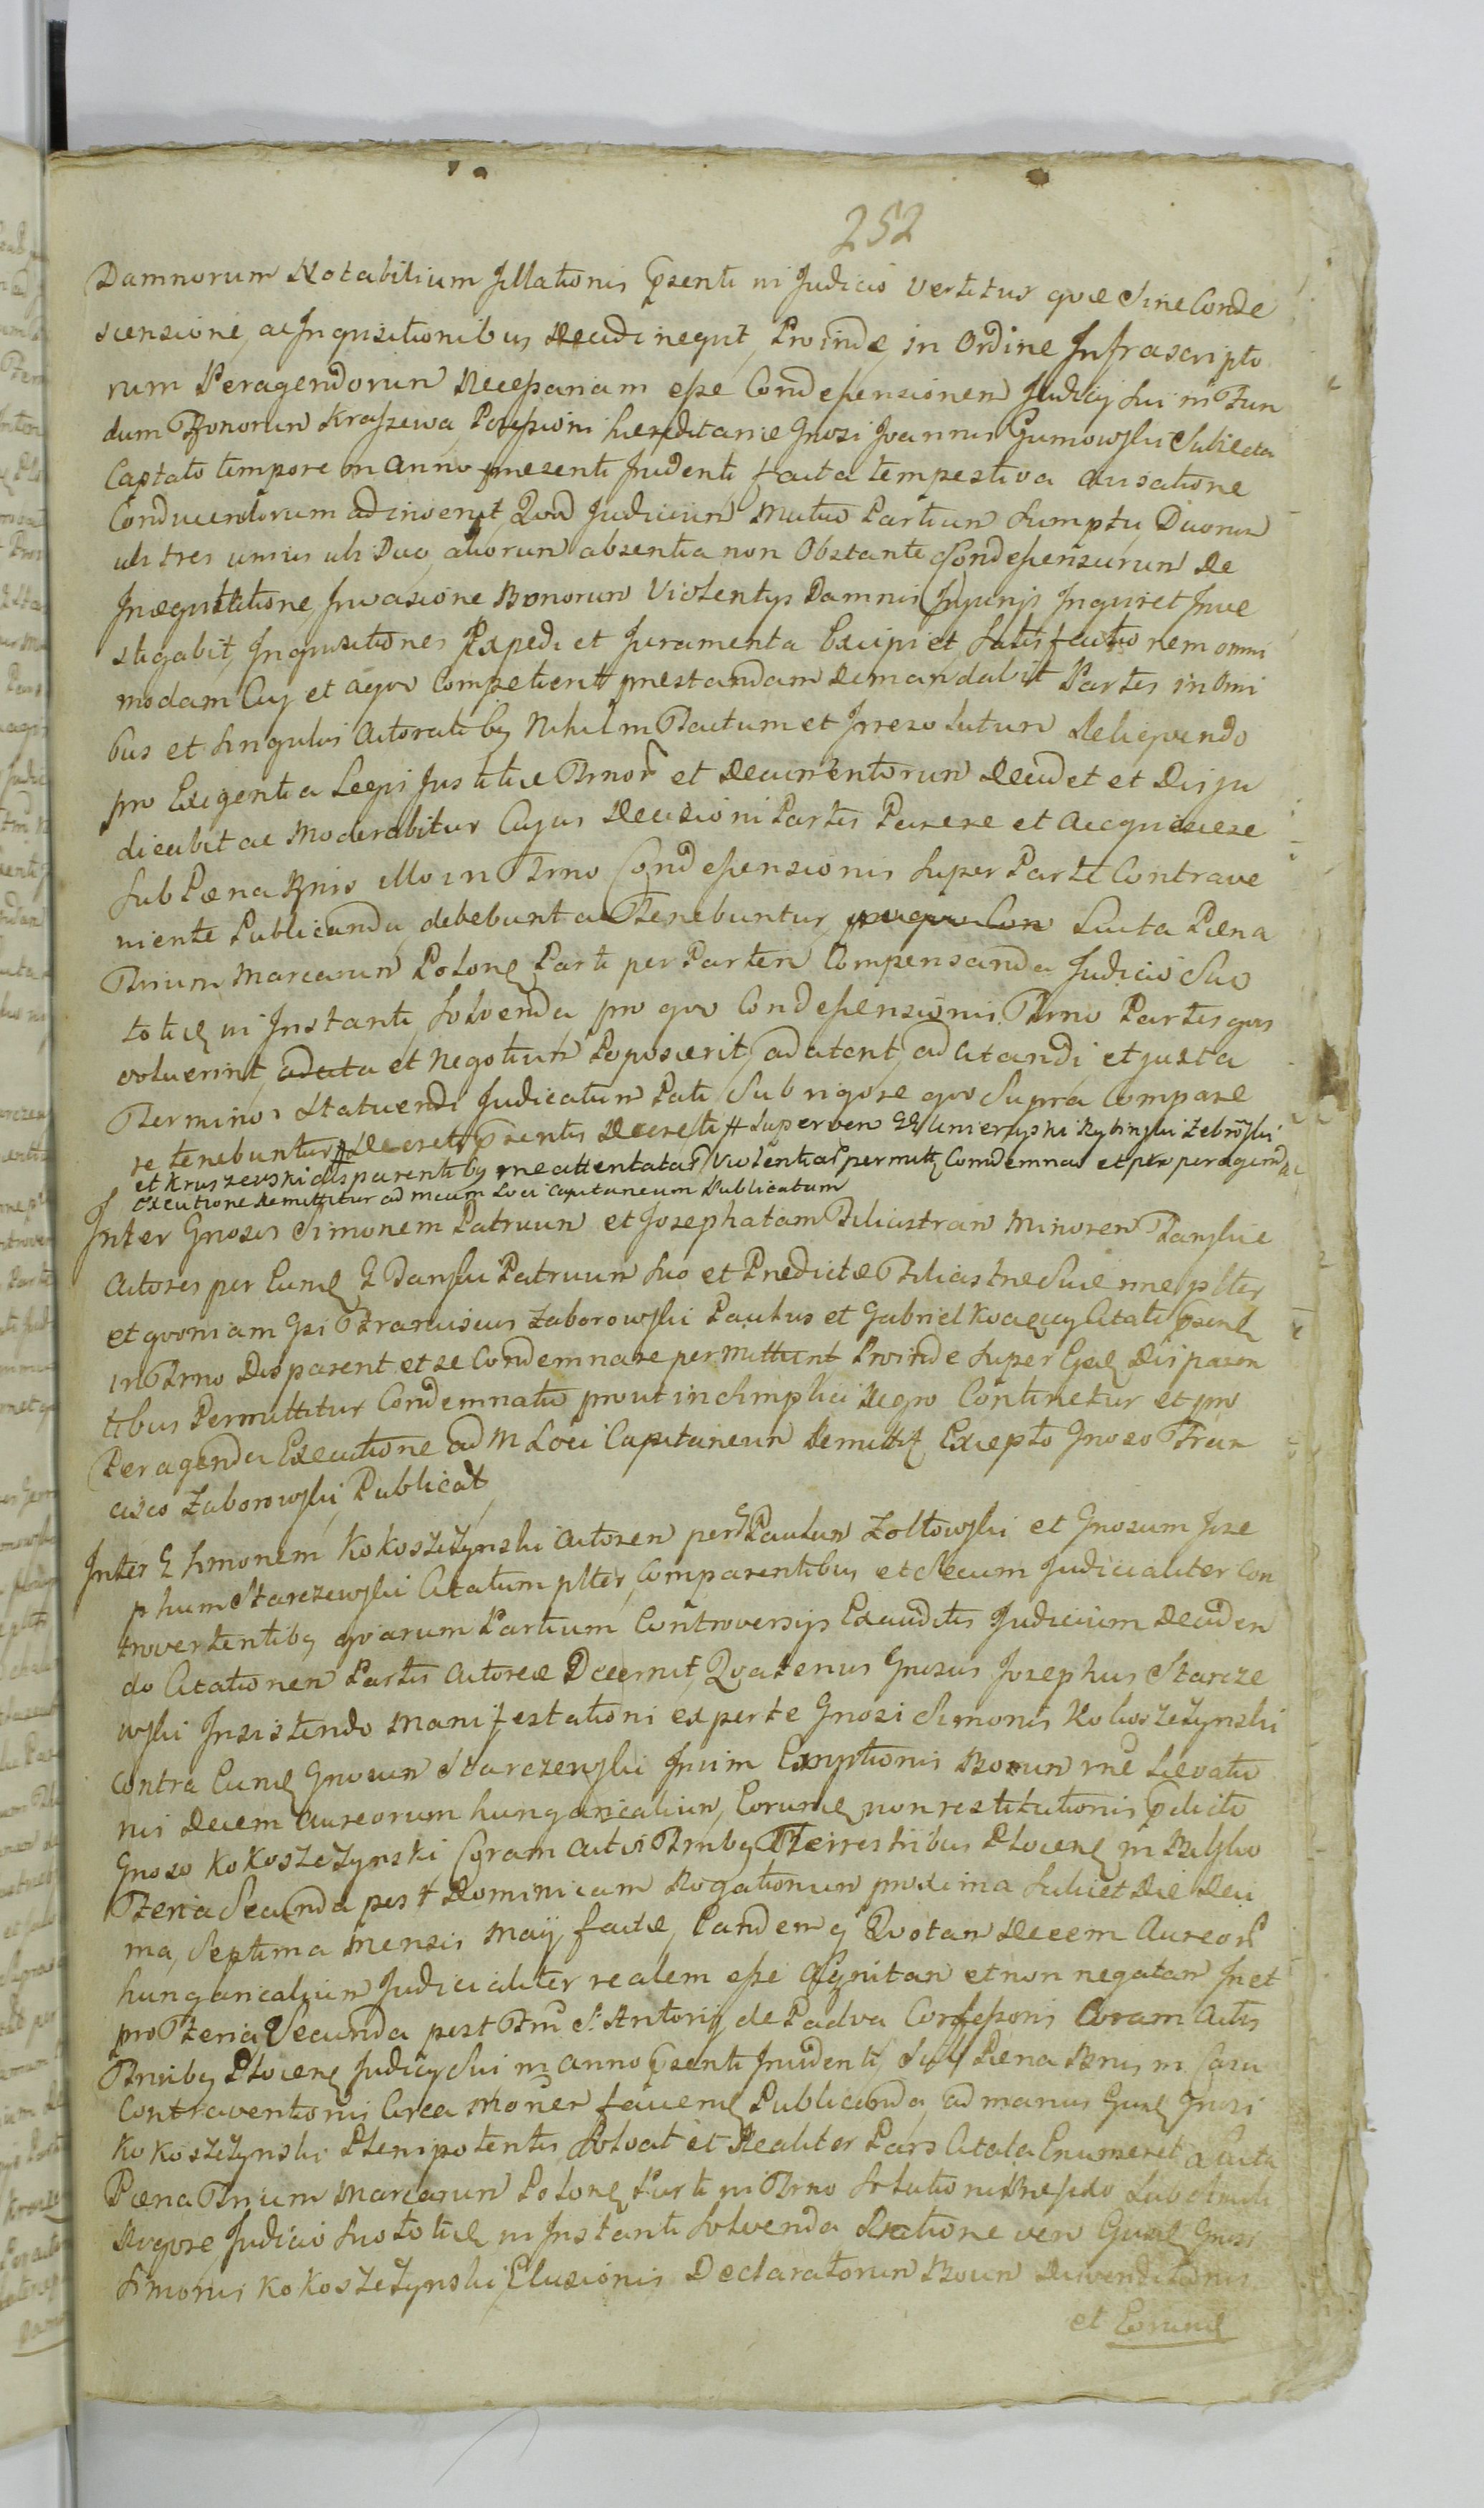 252
Damnorum Notabilium Illationis Pzenti in Judicio vertitur qvæ Sine Conde
scensione, ac Inqvisitionibus decidi neqvit, Proinde in Ordine Infrascripto
rum Peragendorum Necessariam esse Condescensionem Judicÿ Sui in Fun
dum Bonorum Kraszewa, Possessioni hereditariæ Gnosi Joannis Gumowski Subiecta
Captato tempore in anno præsenti Incidenti facta tempestiva avisatione
Conducendorum adinvenit, Qvod Judicium Mutuo Partium Sumptu, Duorum
ubi tres unius ubi Duo, aliorum absentia non Obstante Condescensurum De
Inæqvitatione, Invasione Bonorum Violentÿs Damnis Injurÿs Inqviret Inve
stigabit, Inqvisitiones Expedi et Juramenta Excipiet, Satisfactionem omni
modam Cuj et a qvo Competierit præstandam demandabit Partes in Omni
bus et Singulis Actorati bq Nihil in Factum et Irresolutum Relinqvendo
pro Exigentia Legis Justitiæ Tmor et Documentorum Decidet et Disju
dicabit ac Moderabitur Cujus Decisioni Partes Parere et Acqviescere
Sub Pæna Bnis illo in Tmo Condescensionis Super Parte Contrave
niente Publicanda, debebunt ac Tenebuntur, Luita Pæna
Trium Marcarum Polonq Parti per Partem Compensanda Judicio Suo
totieq in Instanti Solvenda pro qvo Condescensionis Tmo Partes qvos
voluerint adcita et Negotium Poposcerit, adcitent, adcitandi et juxta
Terminos Statuendi Judicatum Pati Sub rigore qvo Supra Compare
re tenebuntur # Decreti Pzentis Decreti # Super ven GG Umieryski Rybinski Zebroski
et Kruszewski disparentibq rne attentatar Violentiar permittz Condemnas et pro peragenda
Executione Remittitur ad meum Loci Capitaneum Publicatum
Inter Gnosos Simonem Patruum et Josephatam Filiastram Minorem Danskie
Actores per Eumq G Danski Patruum Suo et Prædictæ Filiastræ Suæ rne plter
et qvoniam Gsi Franciscus Zaborowski Paulus et Gabriel Citati Pzenq
in Tmo Disparent et se Condemnare permittunt Proinde Super Eisq Disparen
tibus Permittitur Condemnatio prout in Simplici Regro Continetur et pro
Peragenda Executione ad M Loci Capitaneum Remittz Excepto Gnoso Fran
cisco Zaborowski, Publicat
Inter G Simonem Kokoszczynski Actorem per G Paulum Zoltowski et Gnosum Jose
phum Starczewski Citatum plter, Comparentibus et Secum Judicialiter Con
trovertentibq qvarum Partium Controversÿs Exauditis Judicium Deciden
do Citationem Partis Actoreæ Decernit, Qvatenus Gnosus Josephus Starcze
wski Insistendo Manifestationi ex parte Gnosi Simonis Kokoszczynski
contra Eumq Gnosum Starczewski Inuim Emptionis Boum rne Levatio
nis Decem Aureorum hungaricalium, Eorumq non restitutionis Pdicto
Gnoso Kokoszczynski Coram Actis Tmibq Terrestribus Plocenq in Bielsko
Feria Secunda post Dominicam Rogationum proxima Subiet Die Deci
ma, Septima Mensis Maÿ factæ, Eandemq Qvotam Decem Aureor
hungaricalium Judicialiter realem esse Agnitam et non negatam In et
pro Feria Secunda post Tm S. Antonÿ de Padva Confessoris Coram Actis
Tmibq Plocenq Judicÿ Sui in anno Pzenti Incidenti Sub Pæna Bnis in Casu
Contraventionis Circa Moner facienq Publicanda, ad manus Gusq Gnosi
Kokoszczynski Plenipotentis Solvat et Realiter Pars Citata Enumeret Luita
Pæna Trium Marcarum Polonq Parti in Tmo Solutionis Sub Simili
Rigore Judicio Suo totieq in Instanti Solvenda Ratione vero Gusq Gnosi
Simonis Kokoszczynski Elusionis Declaratorum Boum Divenditionis
et Eorumq